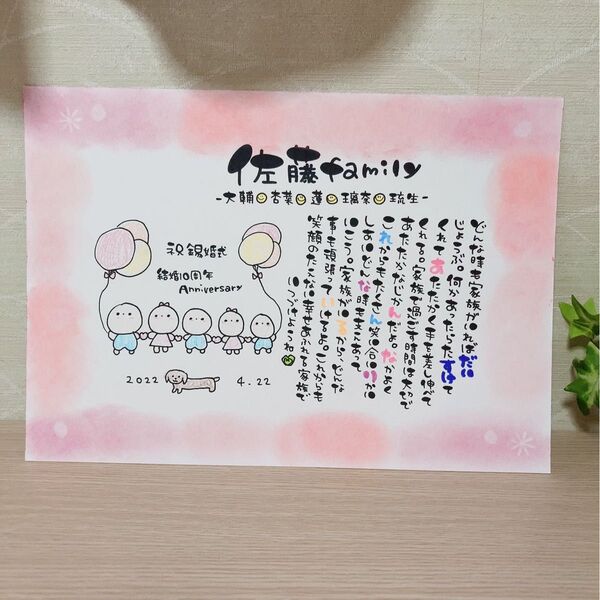 佐藤family
-大輔☺杏菜☺蓮☺璃奈☺琉生-
祝錫婚式
結婚10周年
Anniversary
2022 4.22
どんな時も家族がいればだい
じょうぶ。何かあったらたすけて
くれてあたたかく手を差し伸べて
くれる。家族で過ごす時間は大切で
あたたかいじかんだよ。なかよく
これからもたくさん笑い合いりかい
しあいどんな時も支えあって
いこう。家族がいるから、どんな
事も頑張っていけるよ。これからも
笑顔のたえない幸せあふれる家族で
いつづけようね